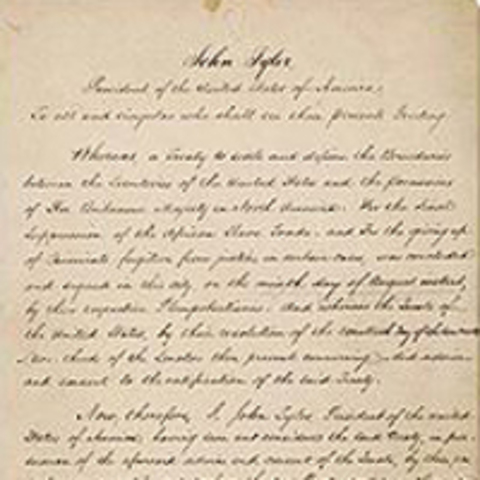 John Tyler
President of the United States of America,
To all and singular who shall see these Presents Greeting
Whereas, a Treaty to settle and define the Boundaries
between the Territories of the United States and the possessions
of Her Britannic Majesty in North America: For the final
Suppression of the African Slave Trade: and For the giving up
of Criminals fugitive from justice, in certain cases, was concluded
and signed in this city, on the ninth day of August
by their respective Plenipotentiaries: And whereas the Senate of
the United States, by their resolution of the
two thirds of the Senators then present concurring, did advise
and consent to the ratification of the said Treaty:
Now, therefore, I, John Tyler, President of the United
States of America, having seen and considered the said Treaty, in pur-
suance of the aforesaid advice and consent of the Senate, by these